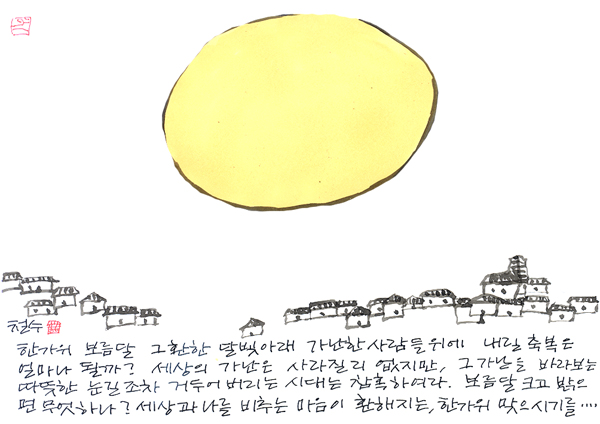 철수
한가위 보름달 그 환한 달빛아래 가난한 사람들 위에 내릴 축복은
얼마나 될까? 세상의 가난은 사라질리 없지만, 그 가난을 바라보는
따뜻한 눈길조차 거두어 버리는 시대는 참혹하여라. 보름달 크고 밝으
면 무엇하나? 세상과 나를 비추는 마음이 환해지는, 한가위 맞으시기를....